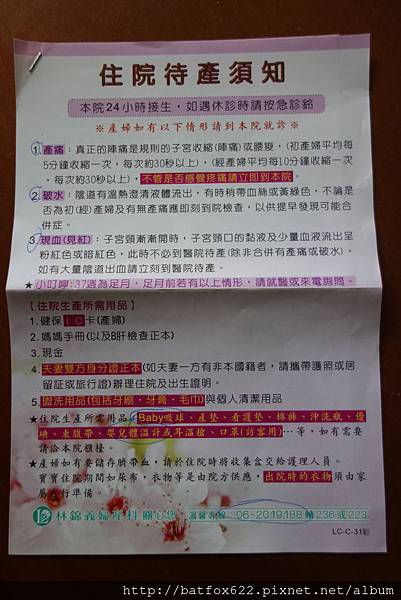 住院待產須知
本院24小時接生，如遇休診時請按急診鈴
※產婦如有以下情形請到本院就診※
1.產痛：真正的陣痛是規則的子宮收縮(陣痛)或腰痠，(初產婦平均每
5分鐘收縮一次，每次約30秒以上)，(經產婦平均每10分鐘收縮一次
，每次約30秒以上)，不管是否感覺疼痛請立即到本院。
2.破水：陰道有溫熱澄清液體流出，有時稍帶血絲或黃綠色，不論是
否為初(經)產婦及有無產痛應即刻到院檢查，以供提早發現可能合
併症。
3.現血(見紅)：子宮頸漸漸開時，子宮頸口的黏液及少量血液流出呈
粉紅色或暗紅色，此時不必到醫院待產(除非合併有產痛或破水)。
如有大量陰道出血請立刻到醫院待產。
★小叮嚀:37週為足月，足月前若有以上情形，請就醫或來電詢問。
【住院生產所需用品】
1.健保IC卡(產婦)
2.媽媽手冊(以及B肝檢查正本)
3.現金
4.夫妻雙方身分證正本(如夫妻一方有非本國籍者，請攜帶護照或居
留証或旅行證)辦理住院及出生證明。
5.盥洗用品(包括牙刷、牙膏、毛巾)與個人清潔用品
★住院生產所需用品(Baby吸球、產墊、看護墊、棉褲、沖洗瓶、優
碘、束腹帶、嬰兒體溫計或耳溫槍、口罩(訪客用)…等，如有需要
請洽本院櫃檯。
★產婦如有要儲存臍帶血，請於住院時將收集盒交給護理人員。
寶寶住院期間如尿布，衣物等是由院方供應，出院時的衣物須由家
屬自行準備。
林錦義婦產科 關心您 溫馨專線 06-2019188轉236或223
LC-C-31彩
http://batfox622.pixnet.net/album